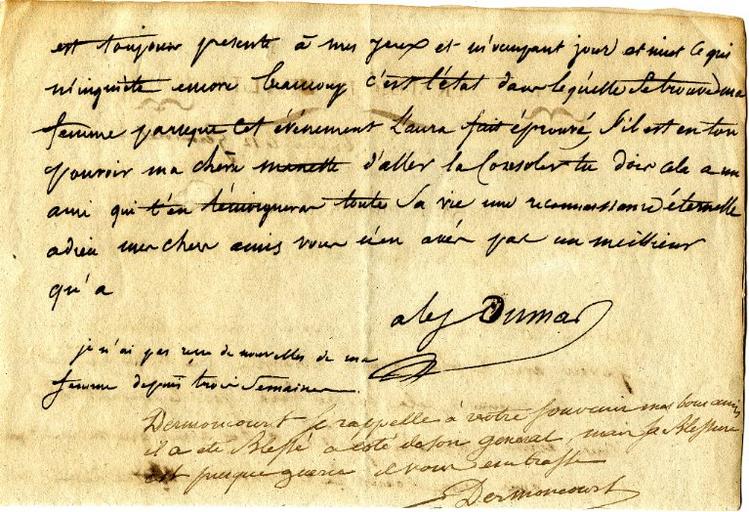 est toujour presente à mes yeux et m'occupant jour et nuit ce qui
m'inquiéte encore beaucoup c'est l'état dans lequelle se trouve ma
femme par ce que cet événement l'aura fait éprouvé, s'il est en ton
pouvoir ma chère manette d'aller la consoler tu dois cela a un
ami qui t'en témoignera toute sa vie une reconnaissance éternelle
adieu mes cher amis vous n'en avér pas un meilleur
qu'a
alex Dumas
je n'ai pas reçu de nouvelles de ma
femme depuis trois semaines
Dermoncourt se rappelle à votre souvenir mes bons amis
il a été blessé à coté de son general, mais sa blessure
est presque guerie il vous embrasse
Dermoncourt